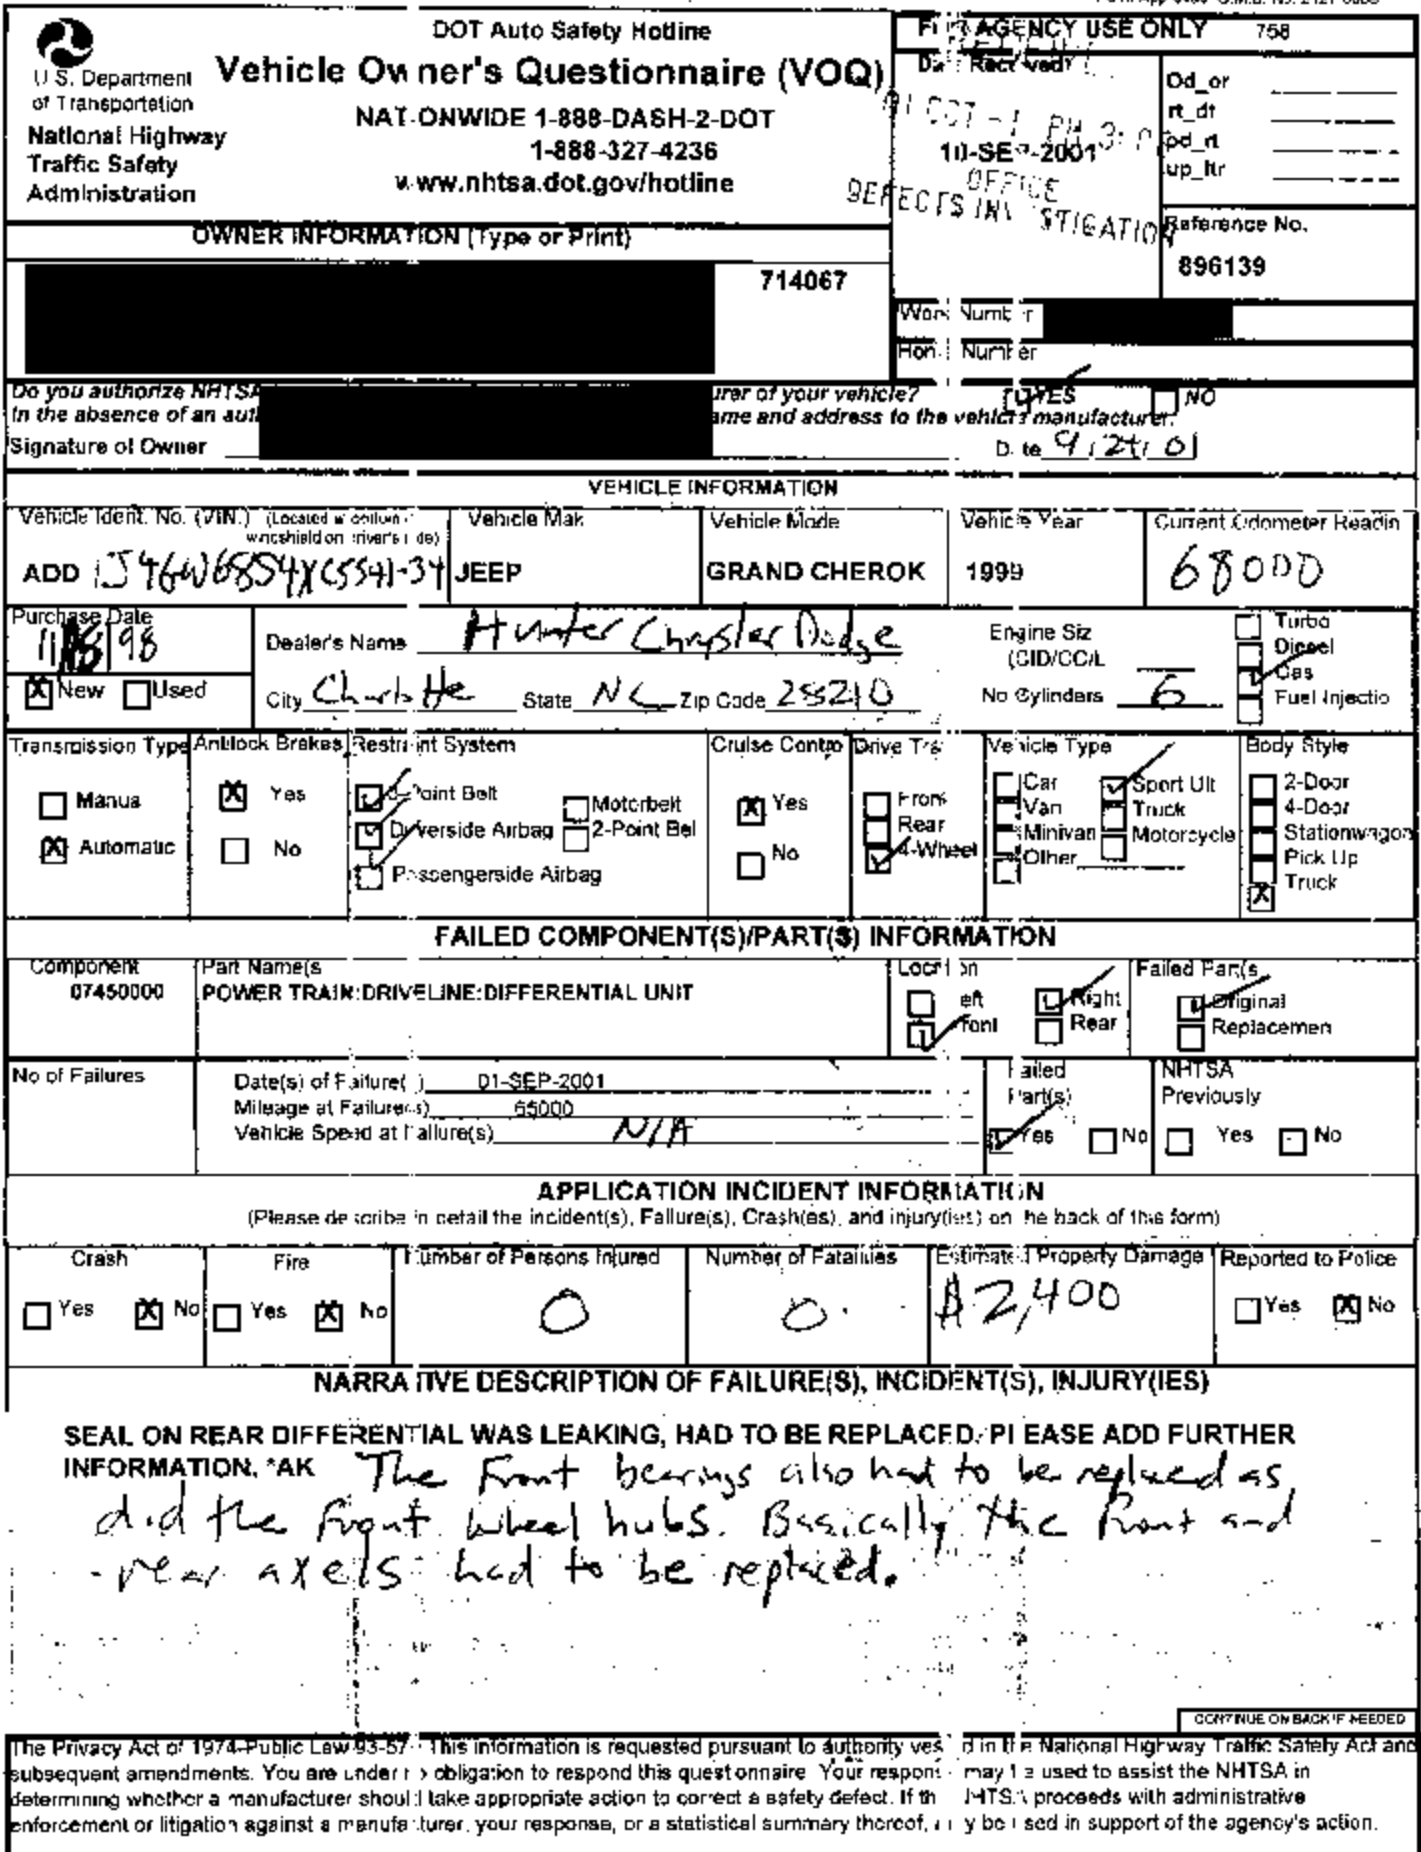 DOT Auto Safety Hotline
Vehicle Owner's Questionnaire (VOQ)
NATIONWIDE 1-888-DASH-2-DOT
1-888-327-4236
www.nhtsa.dot.gov/hotline
U.S. Department
of Transportation
National Highway
Traffic Safety
Administration
AGENCY USE ONLY 758
10-SEP-2001
OFFICE
DEFECTS INVESTIGATION
Od_or
rt_dt
od_rt
up_ltr
Reference No.
896139
OWNER INFORMATION (Type or Print)
714067
Work Number
Home Number
Do you authorize NHTSA
urer of your vehicle? YES NO
In the absence of an aut
ame and address to the vehicle manufacturer.
Signature of Owner
Date
VEHICLE INFORMATION
Vehicle Ident. No. (VIN.)
Vehicle Mak
Vehicle Mode
Vehicle Year
Current Odometer Readin
ADD
JEEP
GRAND CHEROK
1999
68000
Purchase Date
98
X New Used
Dealer's Name Hunter Chrysler Dodge
City Charlotte State NC Zip Code 28210
Engine Siz
(CID/CC/L
No Cylinders 6
Turbo
Diesel
Gas
Fuel Injectio
Transmission Type
Manua
X Automatic
Antilock Brakes
X Yes
No
Restraint System
3-Point Belt
Driverside Airbag
Passengerside Airbag
Motorbelt
2-Point Bel
Cruise Contro
X Yes
No
Drive Tra
Front
Rear
4-Wheel
Vehicle Type
Car
Van
Minivan
Other
Sport Ult
Truck
Motorcycle
Body Style
2-Door
4-Door
Stationwagon
Pick Up
X Truck
FAILED COMPONENT(S)/PART(S) INFORMATION
Component
07450000
Part Name(s
POWER TRAIN:DRIVELINE:DIFFERENTIAL UNIT
Location
Left
Front
Right
Rear
Failed Part(s
Original
Replacemen
No of Failures
Date(s) of Failure(s) 01-SEP-2001
Mileage at Failure(s) 65000
Vehicle Speed at Failure(s) N/A
Failed
Part(s)
Yes No
NHTSA
Previously
Yes No
APPLICATION INCIDENT INFORMATION
(Please describe in detail the incident(s), Failure(s), Crash(es), and injury(ies) on the back of this form)
Crash
Yes X No
Fire
Yes X No
Number of Persons Injured
0
Number of Fatalities
0
Estimated Property Damage
$2,400
Reported to Police
Yes X No
NARRATIVE DESCRIPTION OF FAILURE(S), INCIDENT(S), INJURY(IES)
SEAL ON REAR DIFFERENTIAL WAS LEAKING, HAD TO BE REPLACED. PLEASE ADD FURTHER
INFORMATION. *AK The front bearings also had to be replaced as
did the front wheel hubs. Basically the front and
rear axels had to be replaced.
CONTINUE ON BACK IF NEEDED
The Privacy Act of 1974-Public Law 93-57 This information is requested pursuant to authority vested in the National Highway Traffic Safety Act and
subsequent amendments. You are under no obligation to respond this questionnaire. Your response may be used to assist the NHTSA in
determining whether a manufacturer should take appropriate action to correct a safety defect. If the NHTSA proceeds with administrative
enforcement or litigation against a manufacturer, your response, or a statistical summary thereof, may be used in support of the agency's action.